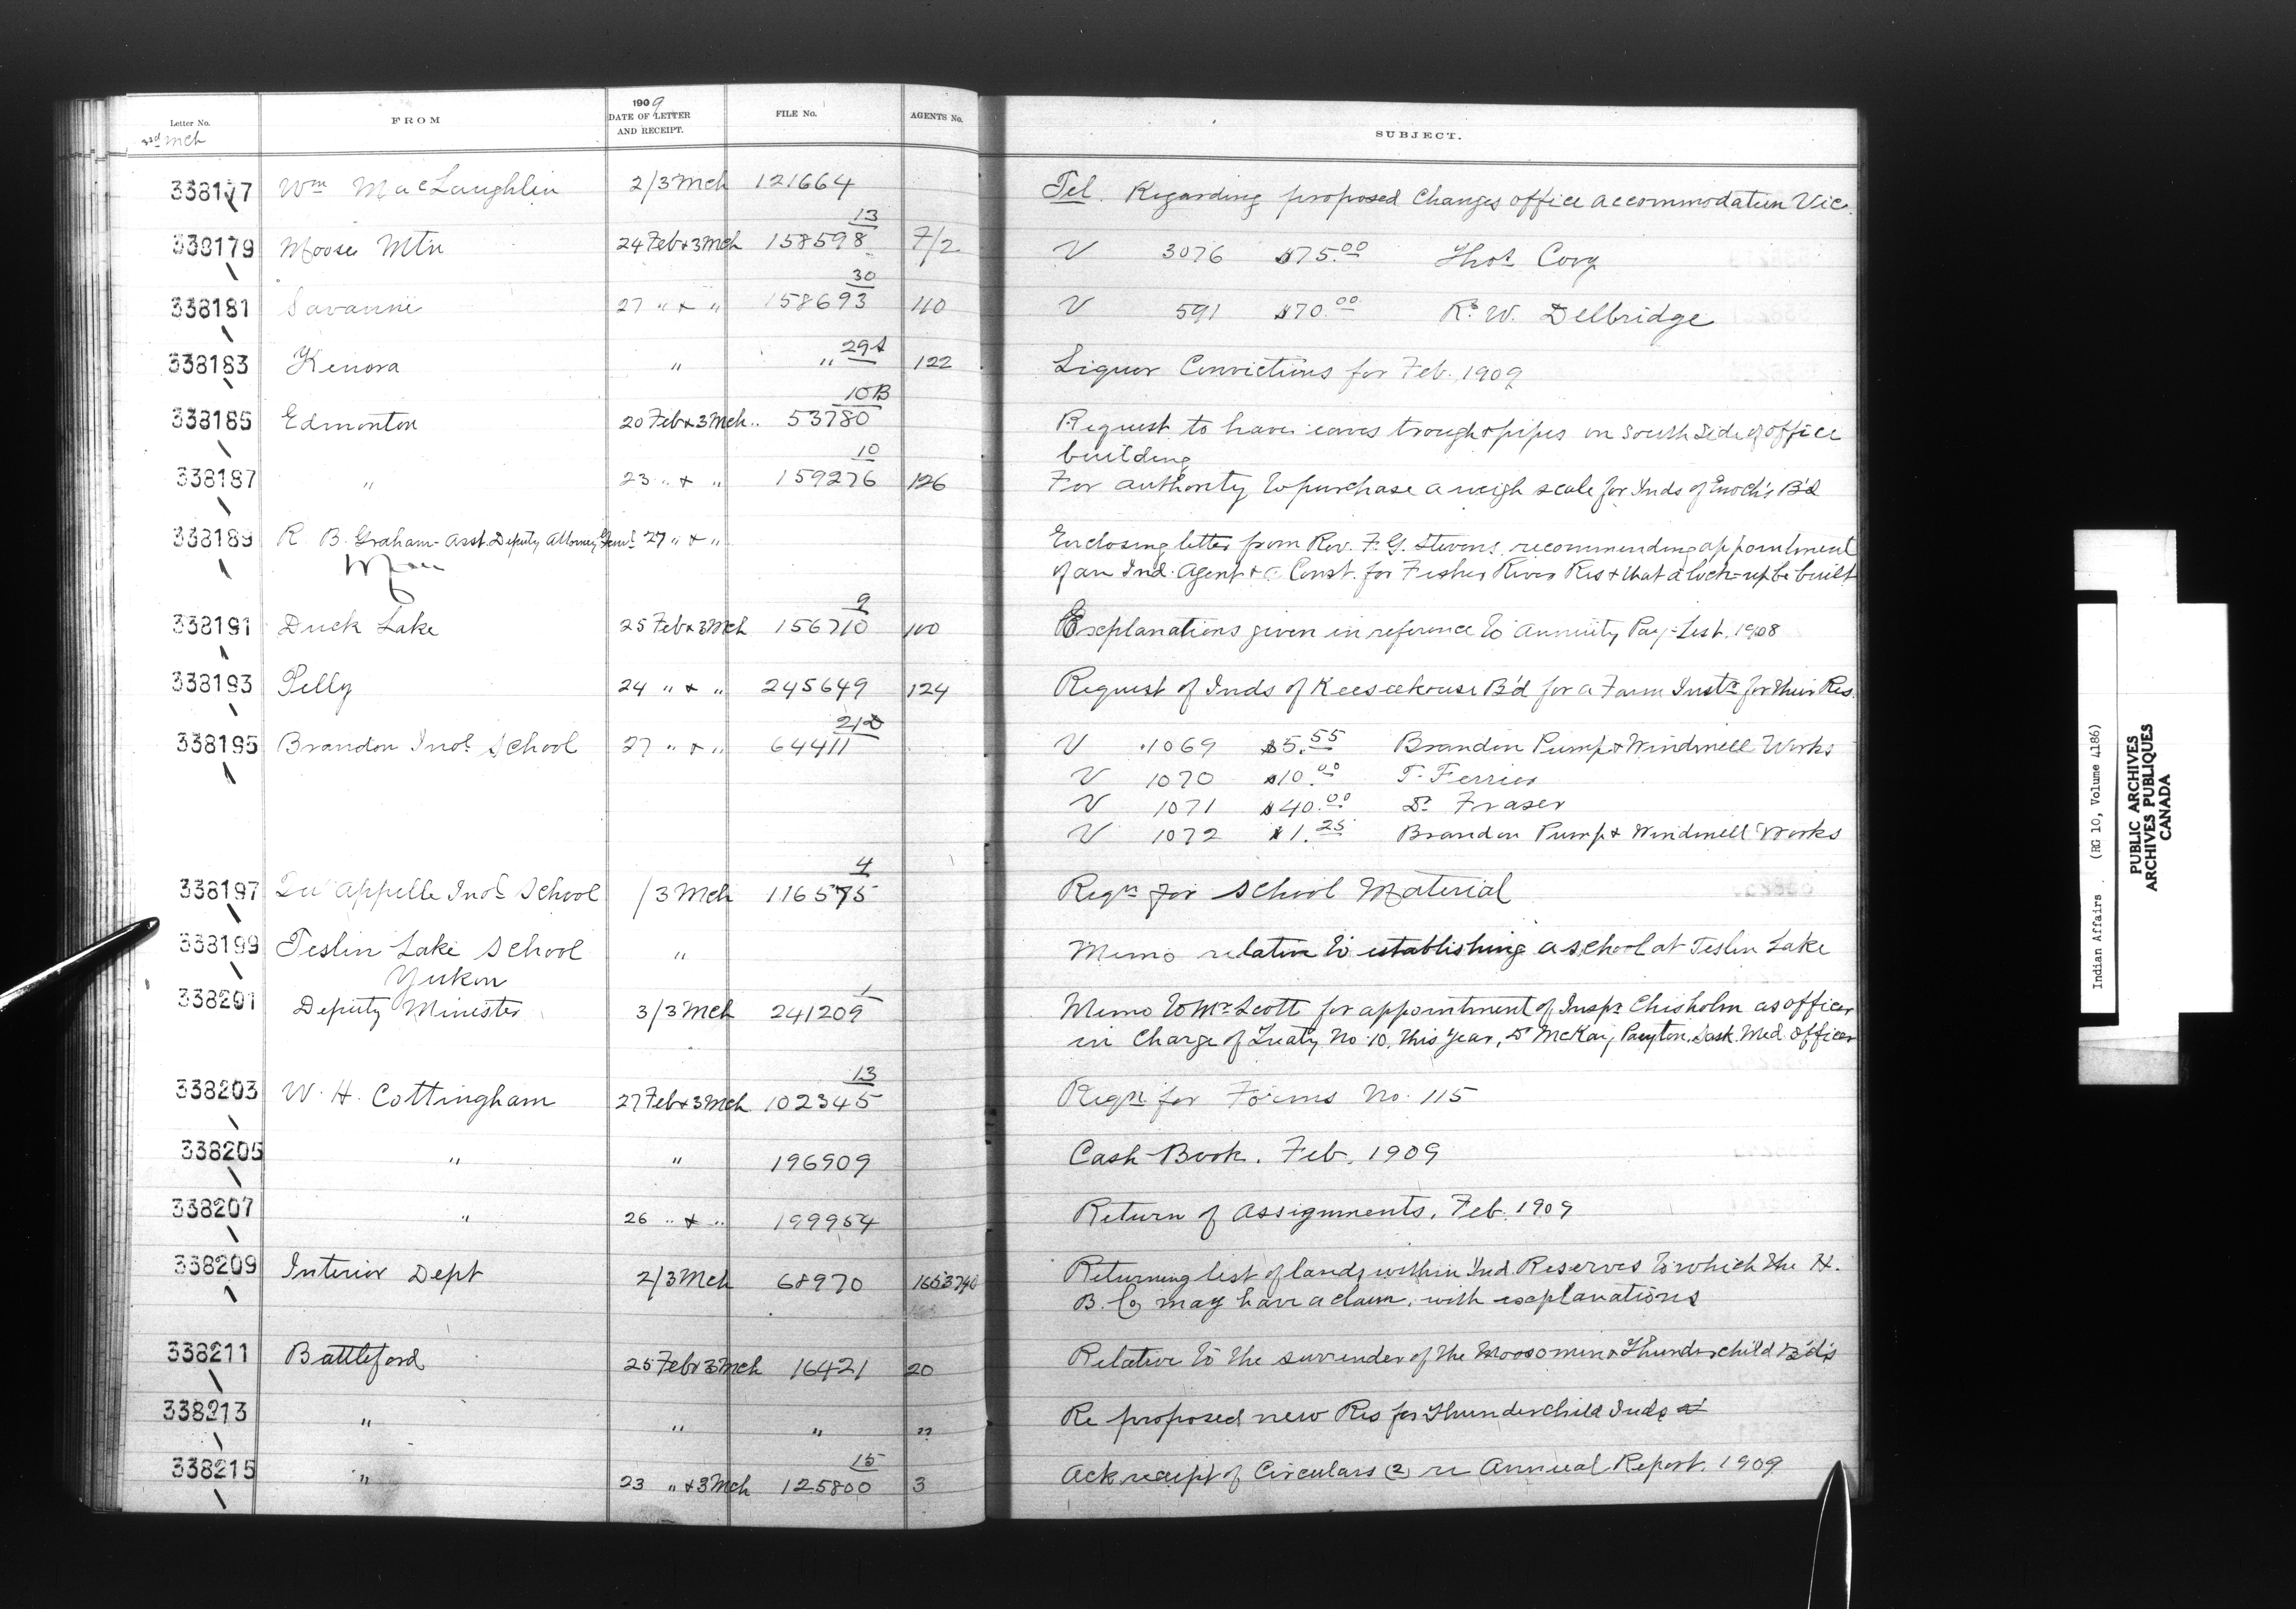 Letter No. FROM 1909 DATE OF LETTER AND RECEIPT. FILE No. AGENTS No. SUBJECT.
3rd Mch
338177 Wm MacLaughlin 2/3 Mch 121664 Tel. Regarding proposed changes office accommodation Vic.
338179 Moose Mtn 24 Feb & 3 Mch 158598 13 7/2 V 3076 $75.00 Thos Cory
338181 Savanne 27 " & " 158693 30 110 V 591 $70.00 R. W. Delbridge
338183 Kenora " " 29 122 Liquor Convictions for Feb. 1909
338185 Edmonton 20 Feb & 3 Mch 53780 10B Request to have eaves trough & pipes on South Side of office
building
338187 " 23 " & " 159276 10 126 For authority to purchase a weigh scale for Inds of Enoch's B'd
338189 R B. Graham - Asst. Deputy Attorney Genl 27 " & " Enclosing letter from Rev. F. G. Stevens, recommending appointment
Man of an Ind. Agent & a Const. for Fisher River Res & that a lock-up be built
338191 Duck Lake 25 Feb & 3 Mch 156710 9 100 Explanations given in reference to Annuity Pay-List. 1908
338193 Pelly 24 " & " 245649 124 Request of Inds of Keeseekouse B'd for a Farm Instr for their Res.
338195 Brandon Indl School 27 " & " 64411 V 1069 $5.55 Brandon Pump & Windmill Works
V 1070 $10.00 T. Ferrier
V 1071 $40.00 Dr Fraser
V 1072 $1.25 Brandon Pump & Windmill Works
338197 Qu'Appelle Indl School /3 Mch 116575 4 Reqn for School Material
338199 Teslin Lake School " Memo relative to establishing a school at Teslin Lake
Yukon
338201 Deputy Minister 3/3 Mch 241209 1 Memo to Mr Scott for appointment of Inspr Chisholm as officer
in Charge of Treaty No. 10, this year, Dr McKay, Paynton, Sask. Med. Officer
338203 W. H. Cottingham 27 Feb & 3 Mch 102345 13 Reqn for Forms No. 115
338205 " " 196909 Cash-Book. Feb. 1909
338207 " 26 " & " 199954 Return of Assignments. Feb. 1909
338209 Interior Dept 2/3 Mch 68970 1653740 Returning list of lands within Ind. Reserves to which the H.
B. Co may have a claim, with explanations
338211 Battleford 25 Feb & 3 Mch 16421 20 Relative to the surrender of the Moosomin & Thunderchild B'ds
338213 " " " " Re proposed new Res for Thunderchild Inds
338215 " 23 " & 3 Mch 125800 15 3 Ack receipt of Circulars (2) re Annual Report. 1909
Indian Affairs . (RG 10, Volume 4186)
PUBLIC ARCHIVES
ARCHIVES PUBLIQUES
CANADA